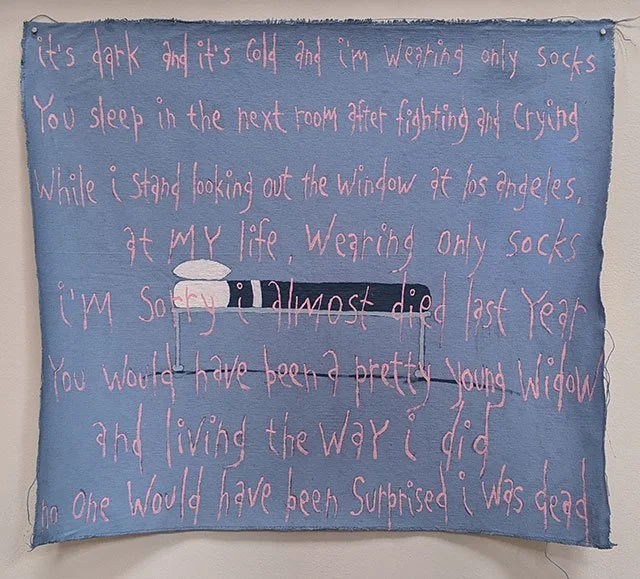 it's dark and it's Cold and i'm wearing only socks
You sleep in the next room after fighting and Crying
While i stand looking out the window at los angeles,
at MY life, Wearing only socks
i'm Sorry i almost died last Year
You would have been a pretty young Widow
and living the WAY i did
no one Would have been Surprised i Was dead